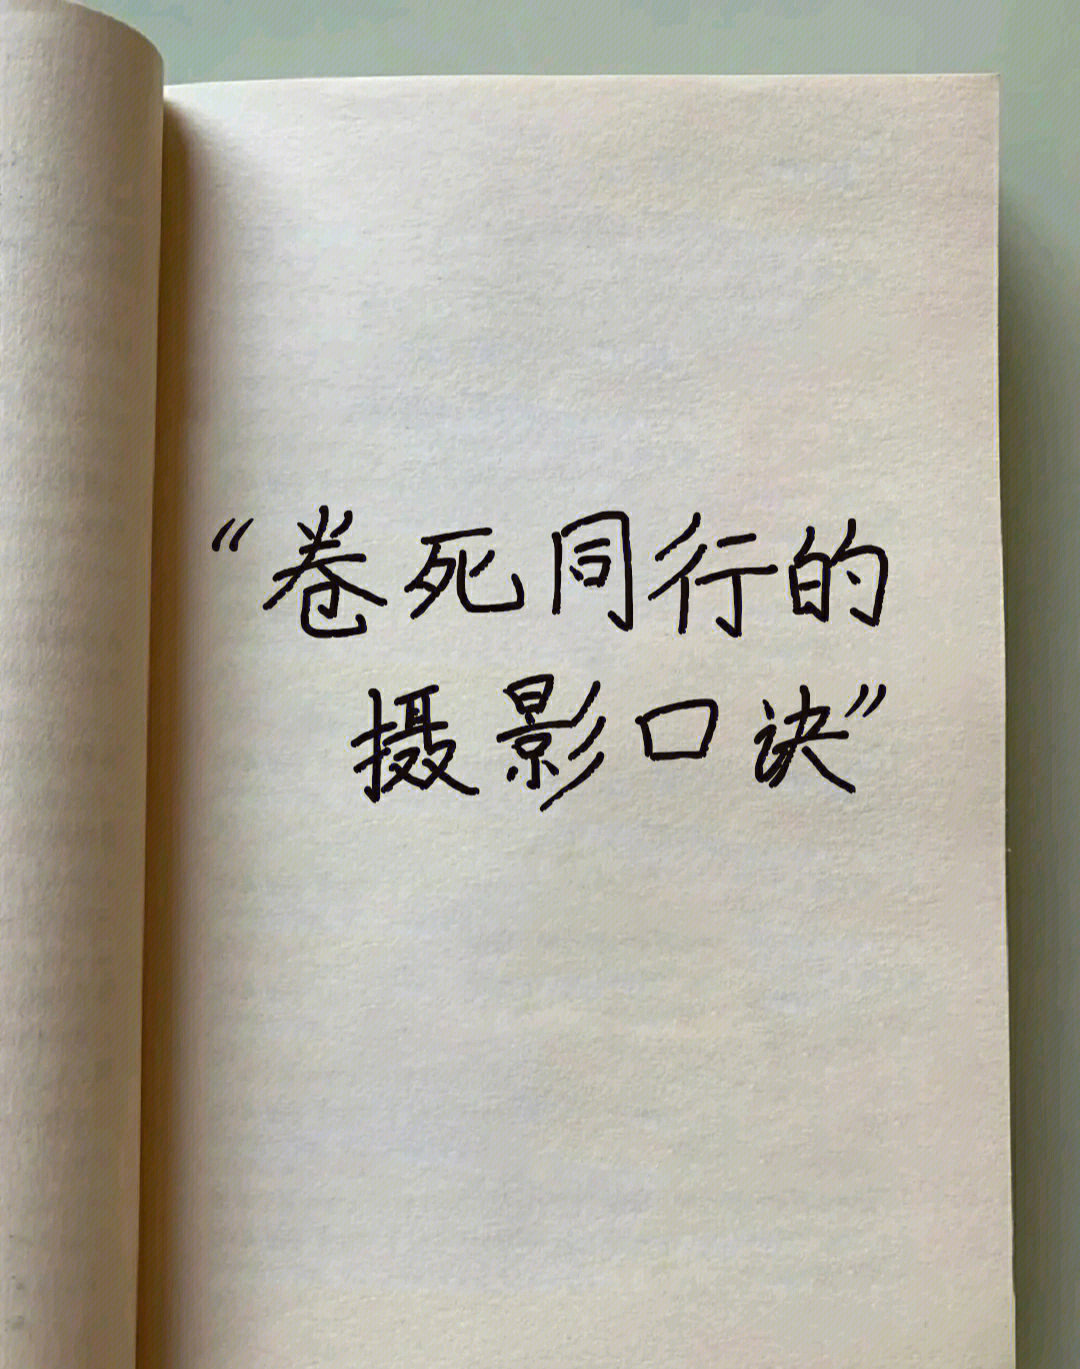 “卷死同行的
摄影口诀”